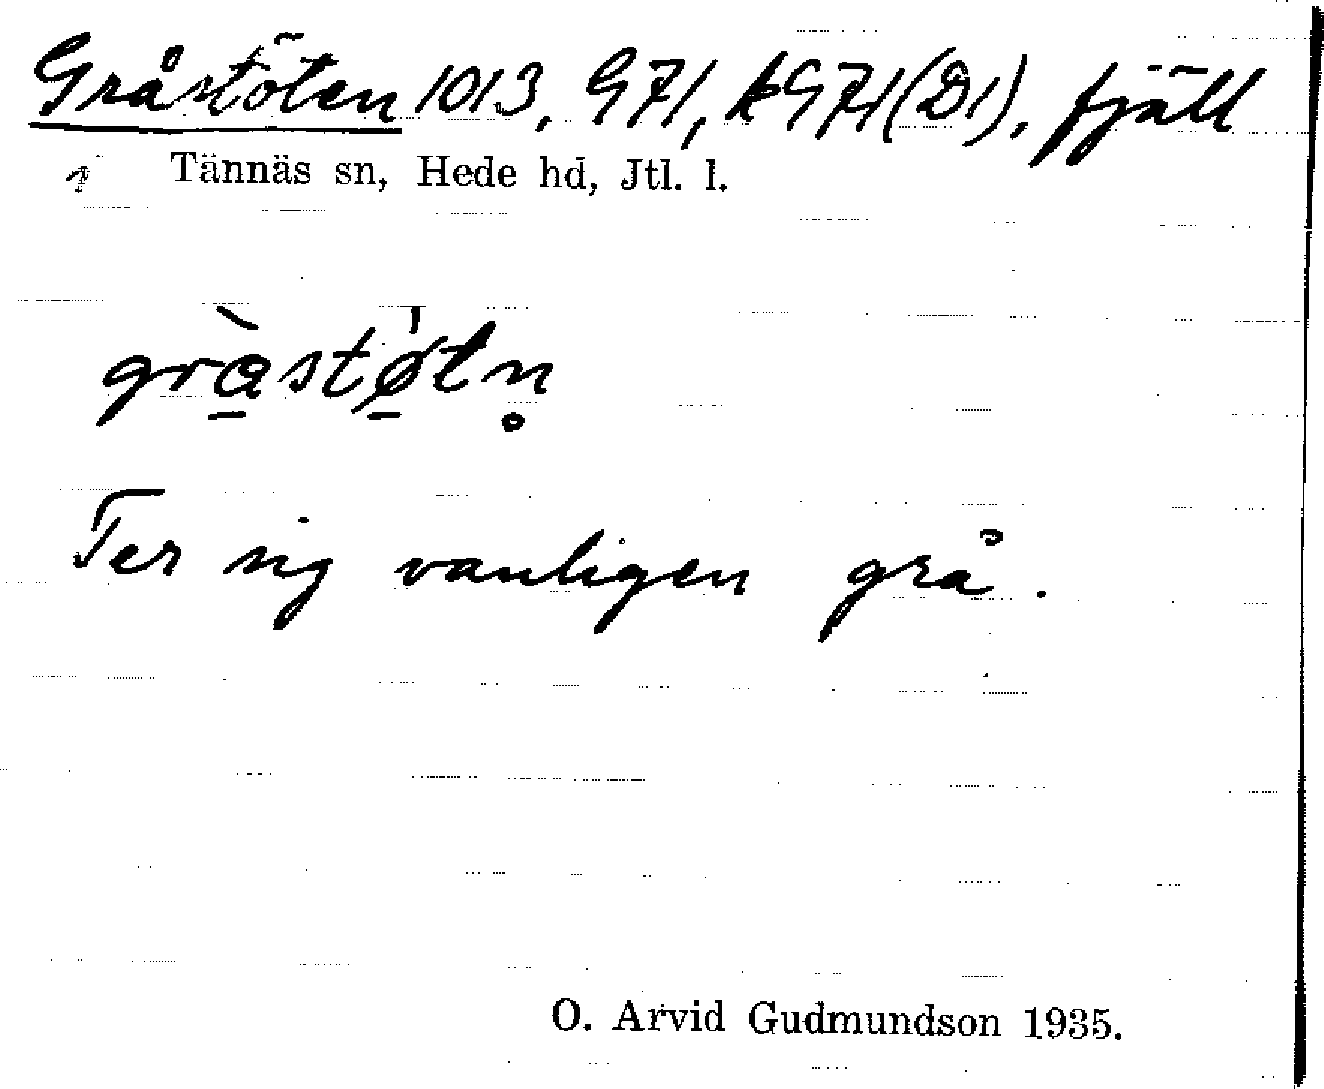 Gråstöten 1013, G71, kG71(D1), fjäll
Tännäs sn, Hede hd, Jtl. l.
grå̠̀stø̠̍tn̥
Ter sig vanligen grå.
O. Arvid Gudmundson 1935.